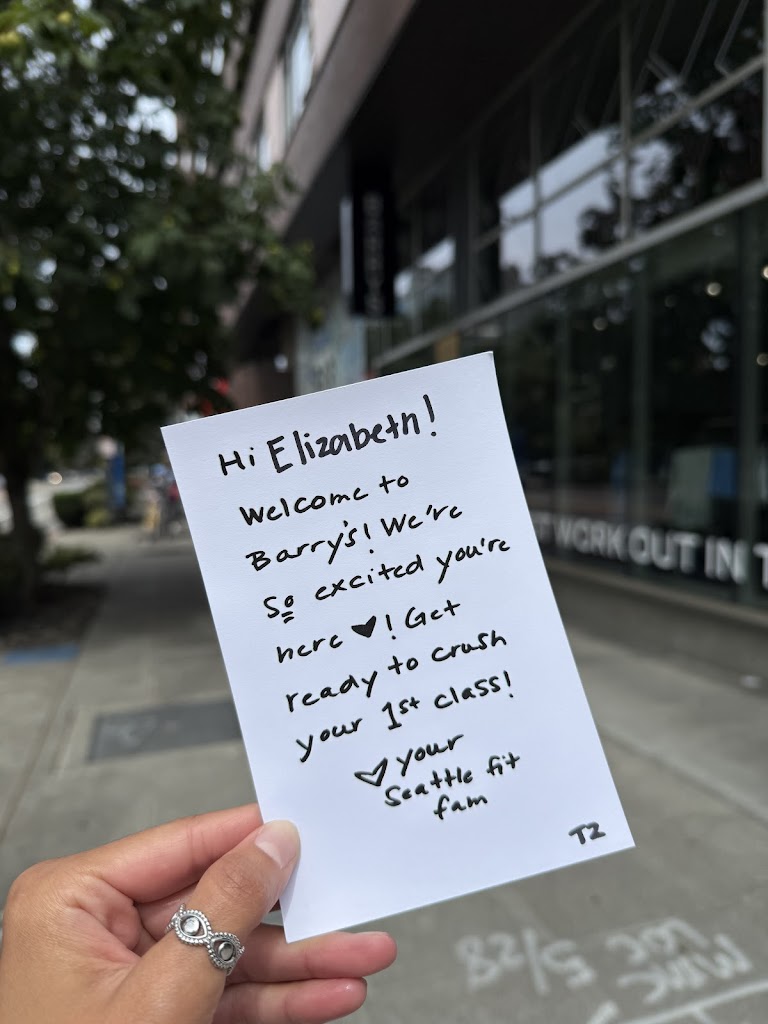 Hi Elizabeth!
Welcome to
Barry's! We're
So excited you're
here ♥! Get
ready to crush
your 1st class!
♡ your
Seattle fit
fam
T2
WORK OUT IN
5/28